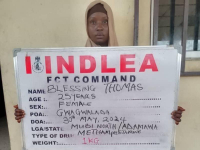 NDLEA
FCT COMMAND
NAME: BLESSING THOMAS
AGE: 25 YEARS
SEX: FEMALE
POA: GWAGWALADA
DOA: 31ST MAY, 2024
LGA/STATE: MUBI NORTH/ADAMAWA
TYPE OF DRUG: METHAMPHETAMINE
WEIGHT: 1KG